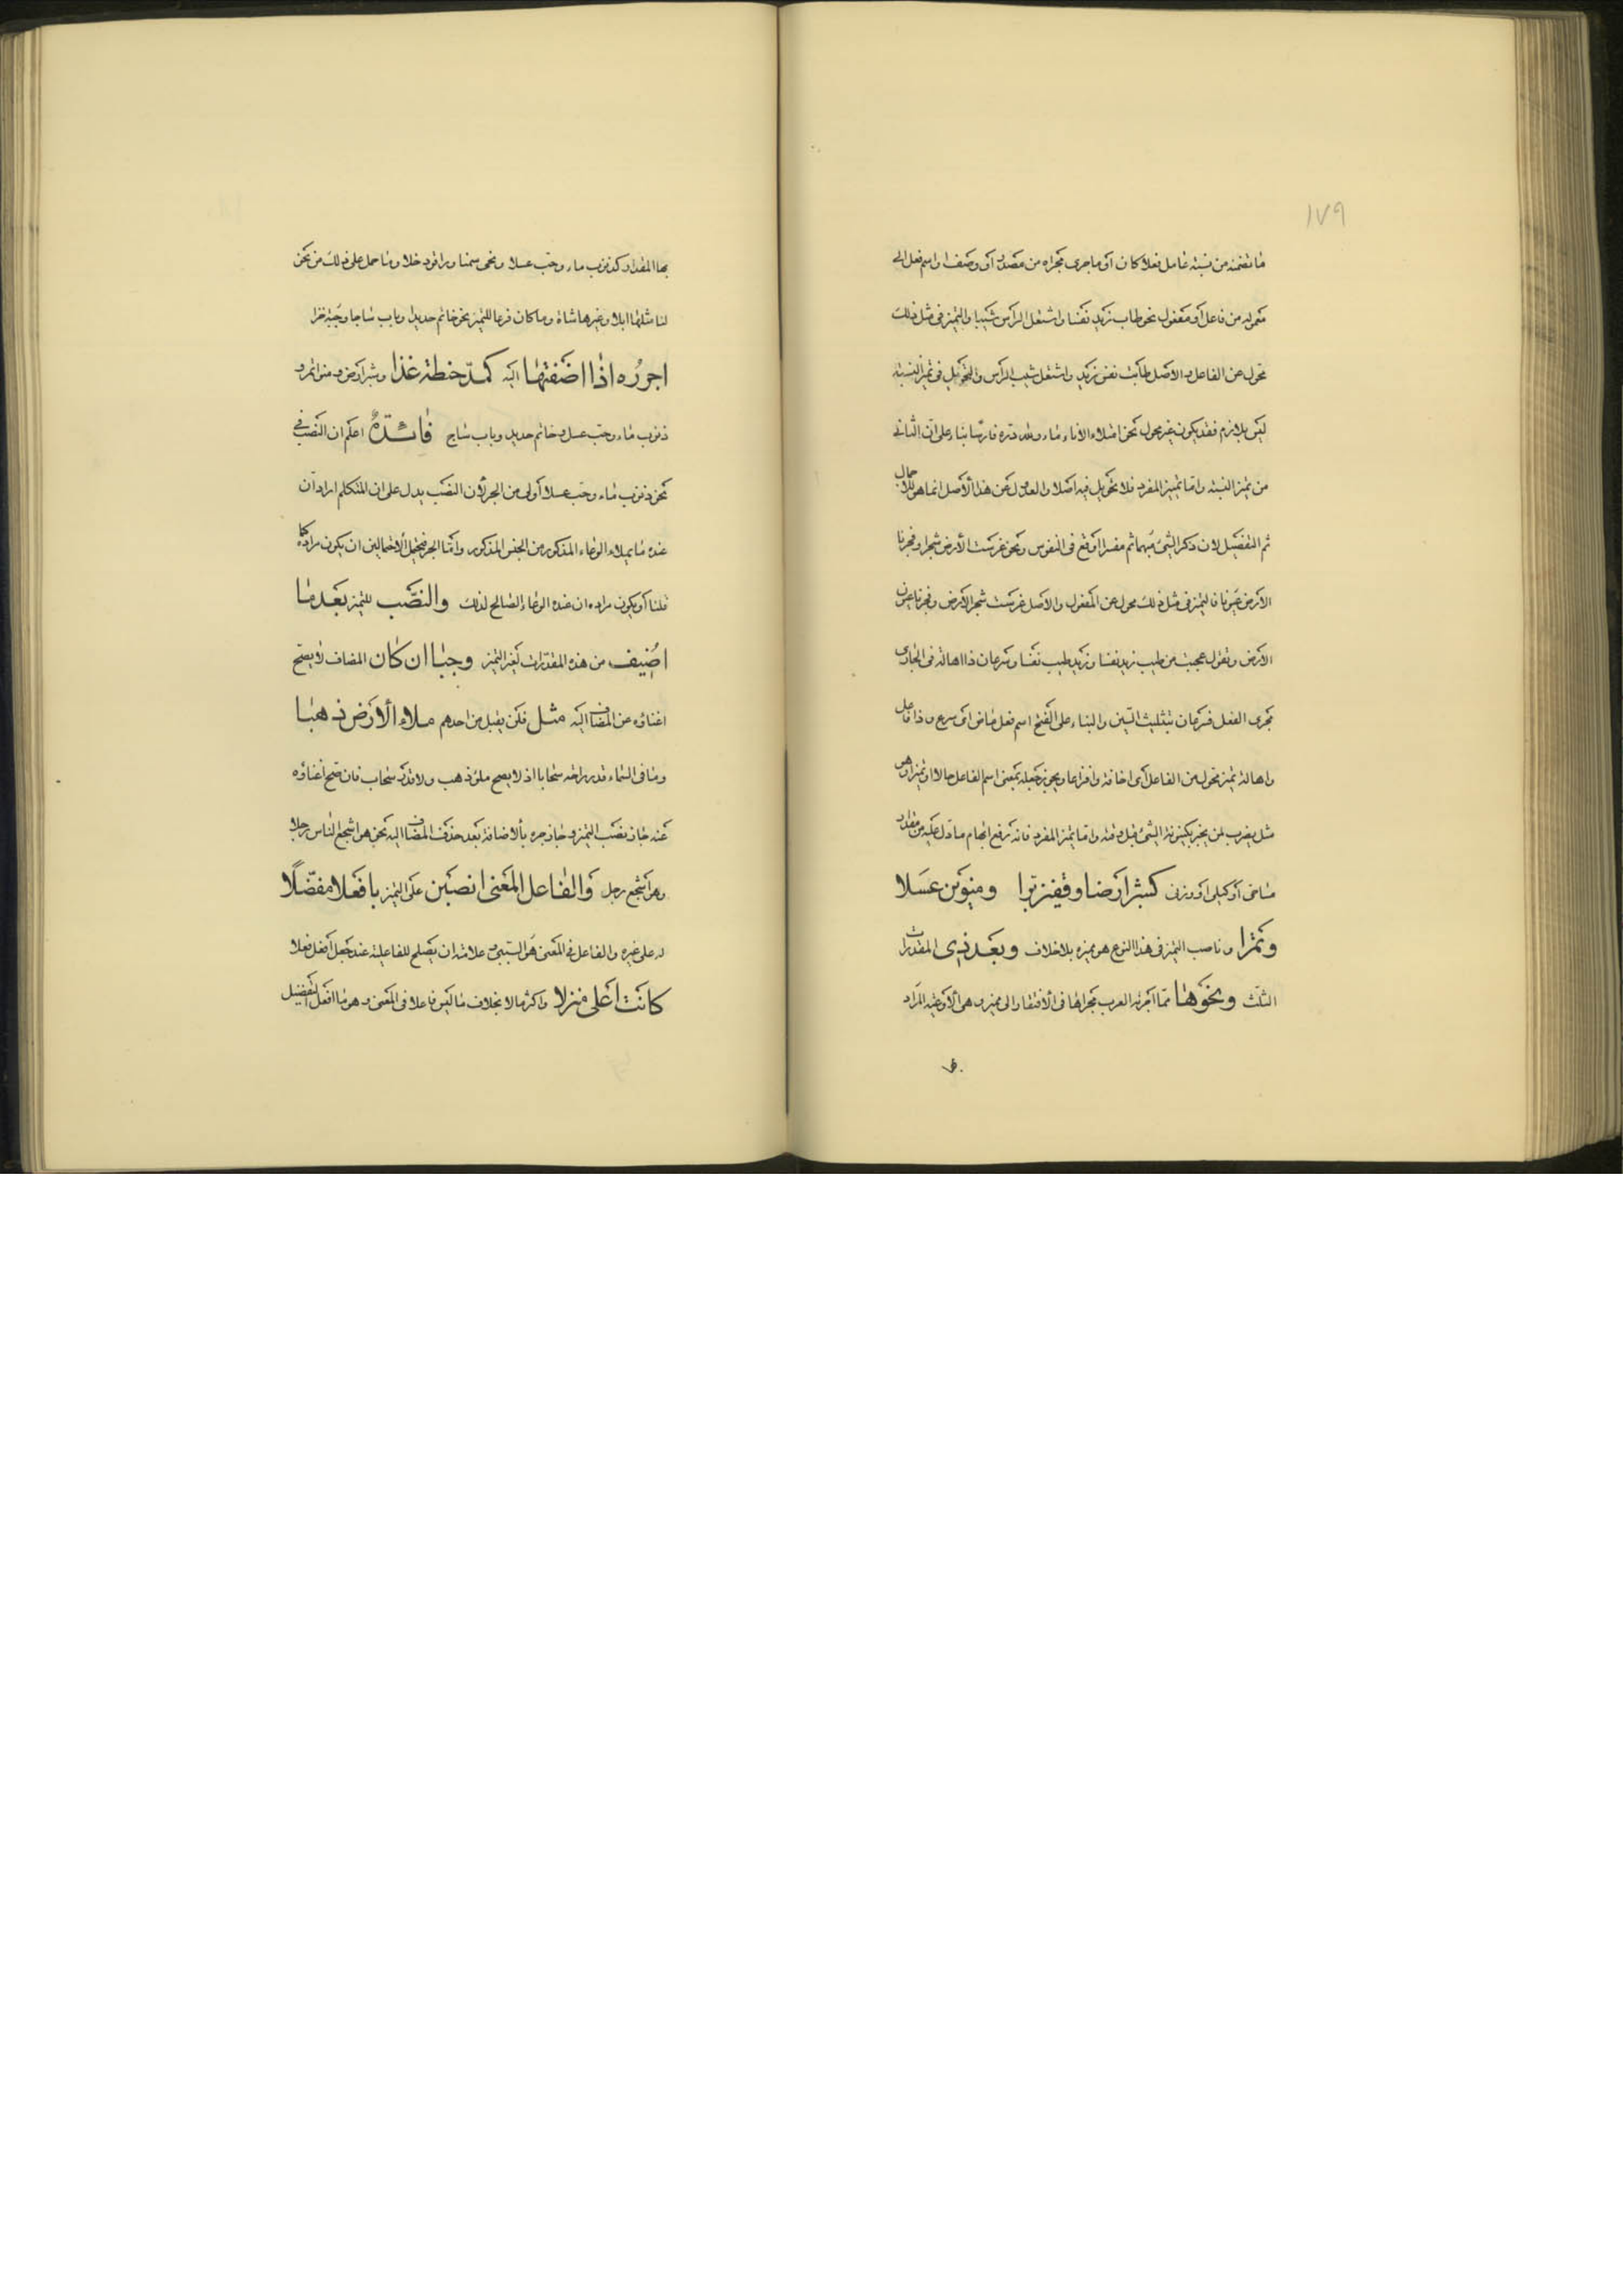 ١٧٩
ما تضمنه من نسبة عامل فعلا كان أو ما جرى مجراه من مصدر أو وصف او اسم فعل الى
معموله من فاعل أو مفعول نحو طاب زيد نفسا واشتعل الرأس شيبا والتميز في مثل ذلك
محول عن الفاعل والاصل طابت نفس زيد واشتعل شيب الرأس والتحويل في تميز النسبة
ليس بلازم فقد يكون غير محول نحو امتلاء الاناء ماء ولله دره فارسا بناء على ان الثاني
من تميز النسبة واما تمييز المفرد فلا تحويل فيه اصلا والعدول عن هذا الأصل انما هو للاجمال
ثم التفصيل لان ذكر الشئ مبهما ثم مفسرا اوقع في النفوس ونحو غرست الأرض شجرا وفجرنا
الارض عيونا فالتميز في مثل ذلك محول عن المفعول والاصل غرست شجر الارض وفجرنا عيون
الارض وتقول عجبت من طيب زيد نفسا وزيد طيب نفسا وسرعان ذا اهالة في الجاري
مجرى الفعل فسرعان بتثليث السين والبناء على الفتح اسم فعل ماض اى سرع وذا فاعل
واهالة تميز محول من الفاعل أى اخافة وافزاعا ويجوز جعله بمعنى اسم الفاعل حالا او تميزا وهو
مثل يضرب لمن يخبر بكينونة الشئ قبل وقته واما تميز المفرد فانه رفع ابهام ما دل عليه من مقدار
مساحى أو كيلى او وزنى كشبر ارضا وقفيز برا ومنوين عسلا
وتمرا وناصب التميز في هذا النوع هو مميزه بلا خلاف وبعد ذى المقدرات
الثلث ونحوها مما اجرته العرب مجراها في الأفتقار الى مميز وهى ألأوعية المراد
بها المقدار كذنوب ماء وحب عسلا ونحى سمنا وراقود خلا وما حمل على ذلك من نحو
لنا مثلها ابلا وغيرها شاة وما كان فرعا للتميز نحو خاتم حديدا وباب ساجا وجبة خزا
اجرره اذا اضفتها اليه كمد حنطة غذا وشبر ارض ومنوا تمر و
ذنوب ماء وحب عسل وخاتم حديد وباب ساج فائدة اعلم ان النصب في
نحو ذنوب ماء وحب عسلا أولى من الجر لأن النصب يدل على ان المتكلم اراد أن
عنده ما يملاء الوعاء المذكور من الجنس المذكور وأما الجر فيحتمل ألاحتمالين ان يكون مراده كما
قلنا أو يكون مراده ان عنده الوعاء الصالح لذلك والنصب للتميز بعد ما
اضيف من هذه المقدرات لغير التميز وجبا ان كان المضاف لا يصح
اغناؤه عن المضاف اليه مثل فلن يقبل من احدهم ملاء ألارض ذهبا
وما في السماء قدر راحة سحابا اذ لا يصح ملؤ ذهب ولا قدر سحاب فان صح اغناؤه
عنه جاز نصب التميز وجاز جره بألاضافة بعد حذف المضاف اليه نحو هو اشجع الناس رجلا
وهو أشجع رجل والفاعل المعنى انصبن على التميز بافعلا مفضلا
له على غيره والفاعل في المعنى هو السببى وعلامته ان يصلح للفاعلية عند جعل أفعل فعلا
كانت اعلى منزلا واكثر مالا بخلاف ما ليس فاعلا في المعنى وهو ما افعل التفضيل